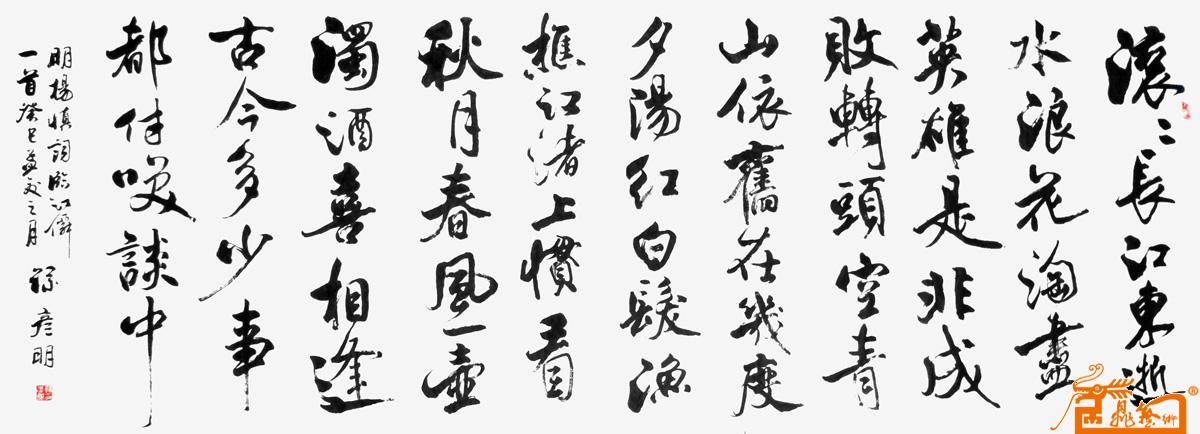 滚〻長江東逝
水浪花淘盡
英雄是非成
敗轉頭空青
山依舊在幾度
夕陽紅白髮漁
樵江渚上慣看
秋月春風一壺
濁酒喜相逢
古今多少事
都付笑談中
明楊慎詞臨江僊
一首癸巳之月
孫彦明